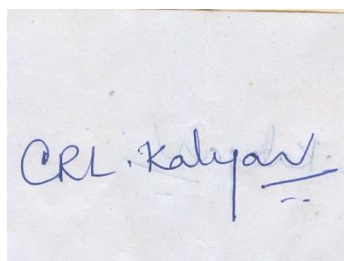 CRL. Kalyan